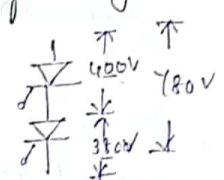 400V
780V
380V